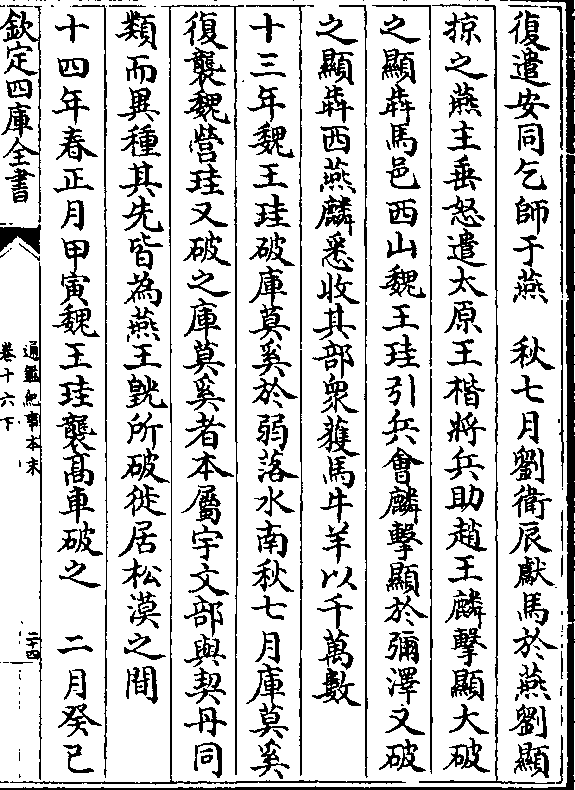 復遣安同乞師于燕　秋七月劉衛辰獻馬於燕劉顯
掠之燕主垂怒遣太原王楷將兵助趙王麟擊顯大破
之顯犇馬邑西山魏王珪引兵會麟擊顯於彌澤又破
之顯犇西燕麟悉收其部衆獲馬牛羊以千萬數
十三年魏王珪破庫莫奚於弱落水南秋七月庫莫奚
復襲魏營珪又破之庫莫奚者本屬宇文部與契丹同
類而異種其先皆為燕王皝所破徙居松漠之間
十四年春正月甲寅魏王珪襲髙車破之　二月癸巳
欽定四庫全書
通鑑紀事本末
卷十六下
二十四